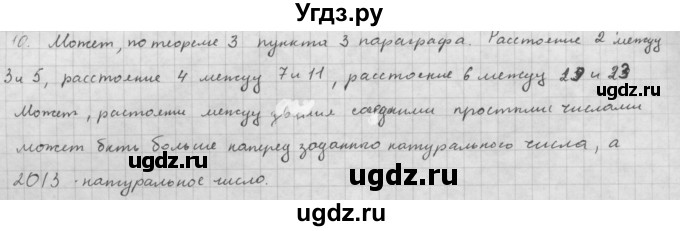 Угдз.ру
10. Может, по теореме 3 пункта 3 параграфа. Расстояние 2 между
3 и 5, расстояние 4 между 7 и 11, расстояние 6 между и 23
Может, растояни между двумя соседними простыми числами
может быть больше наперед заданного натурального числа, а
2013 - натуральное число.
uдgz.ru
uдgz.ru
uдgz.ru
uдgz.ru
uдgz.ru